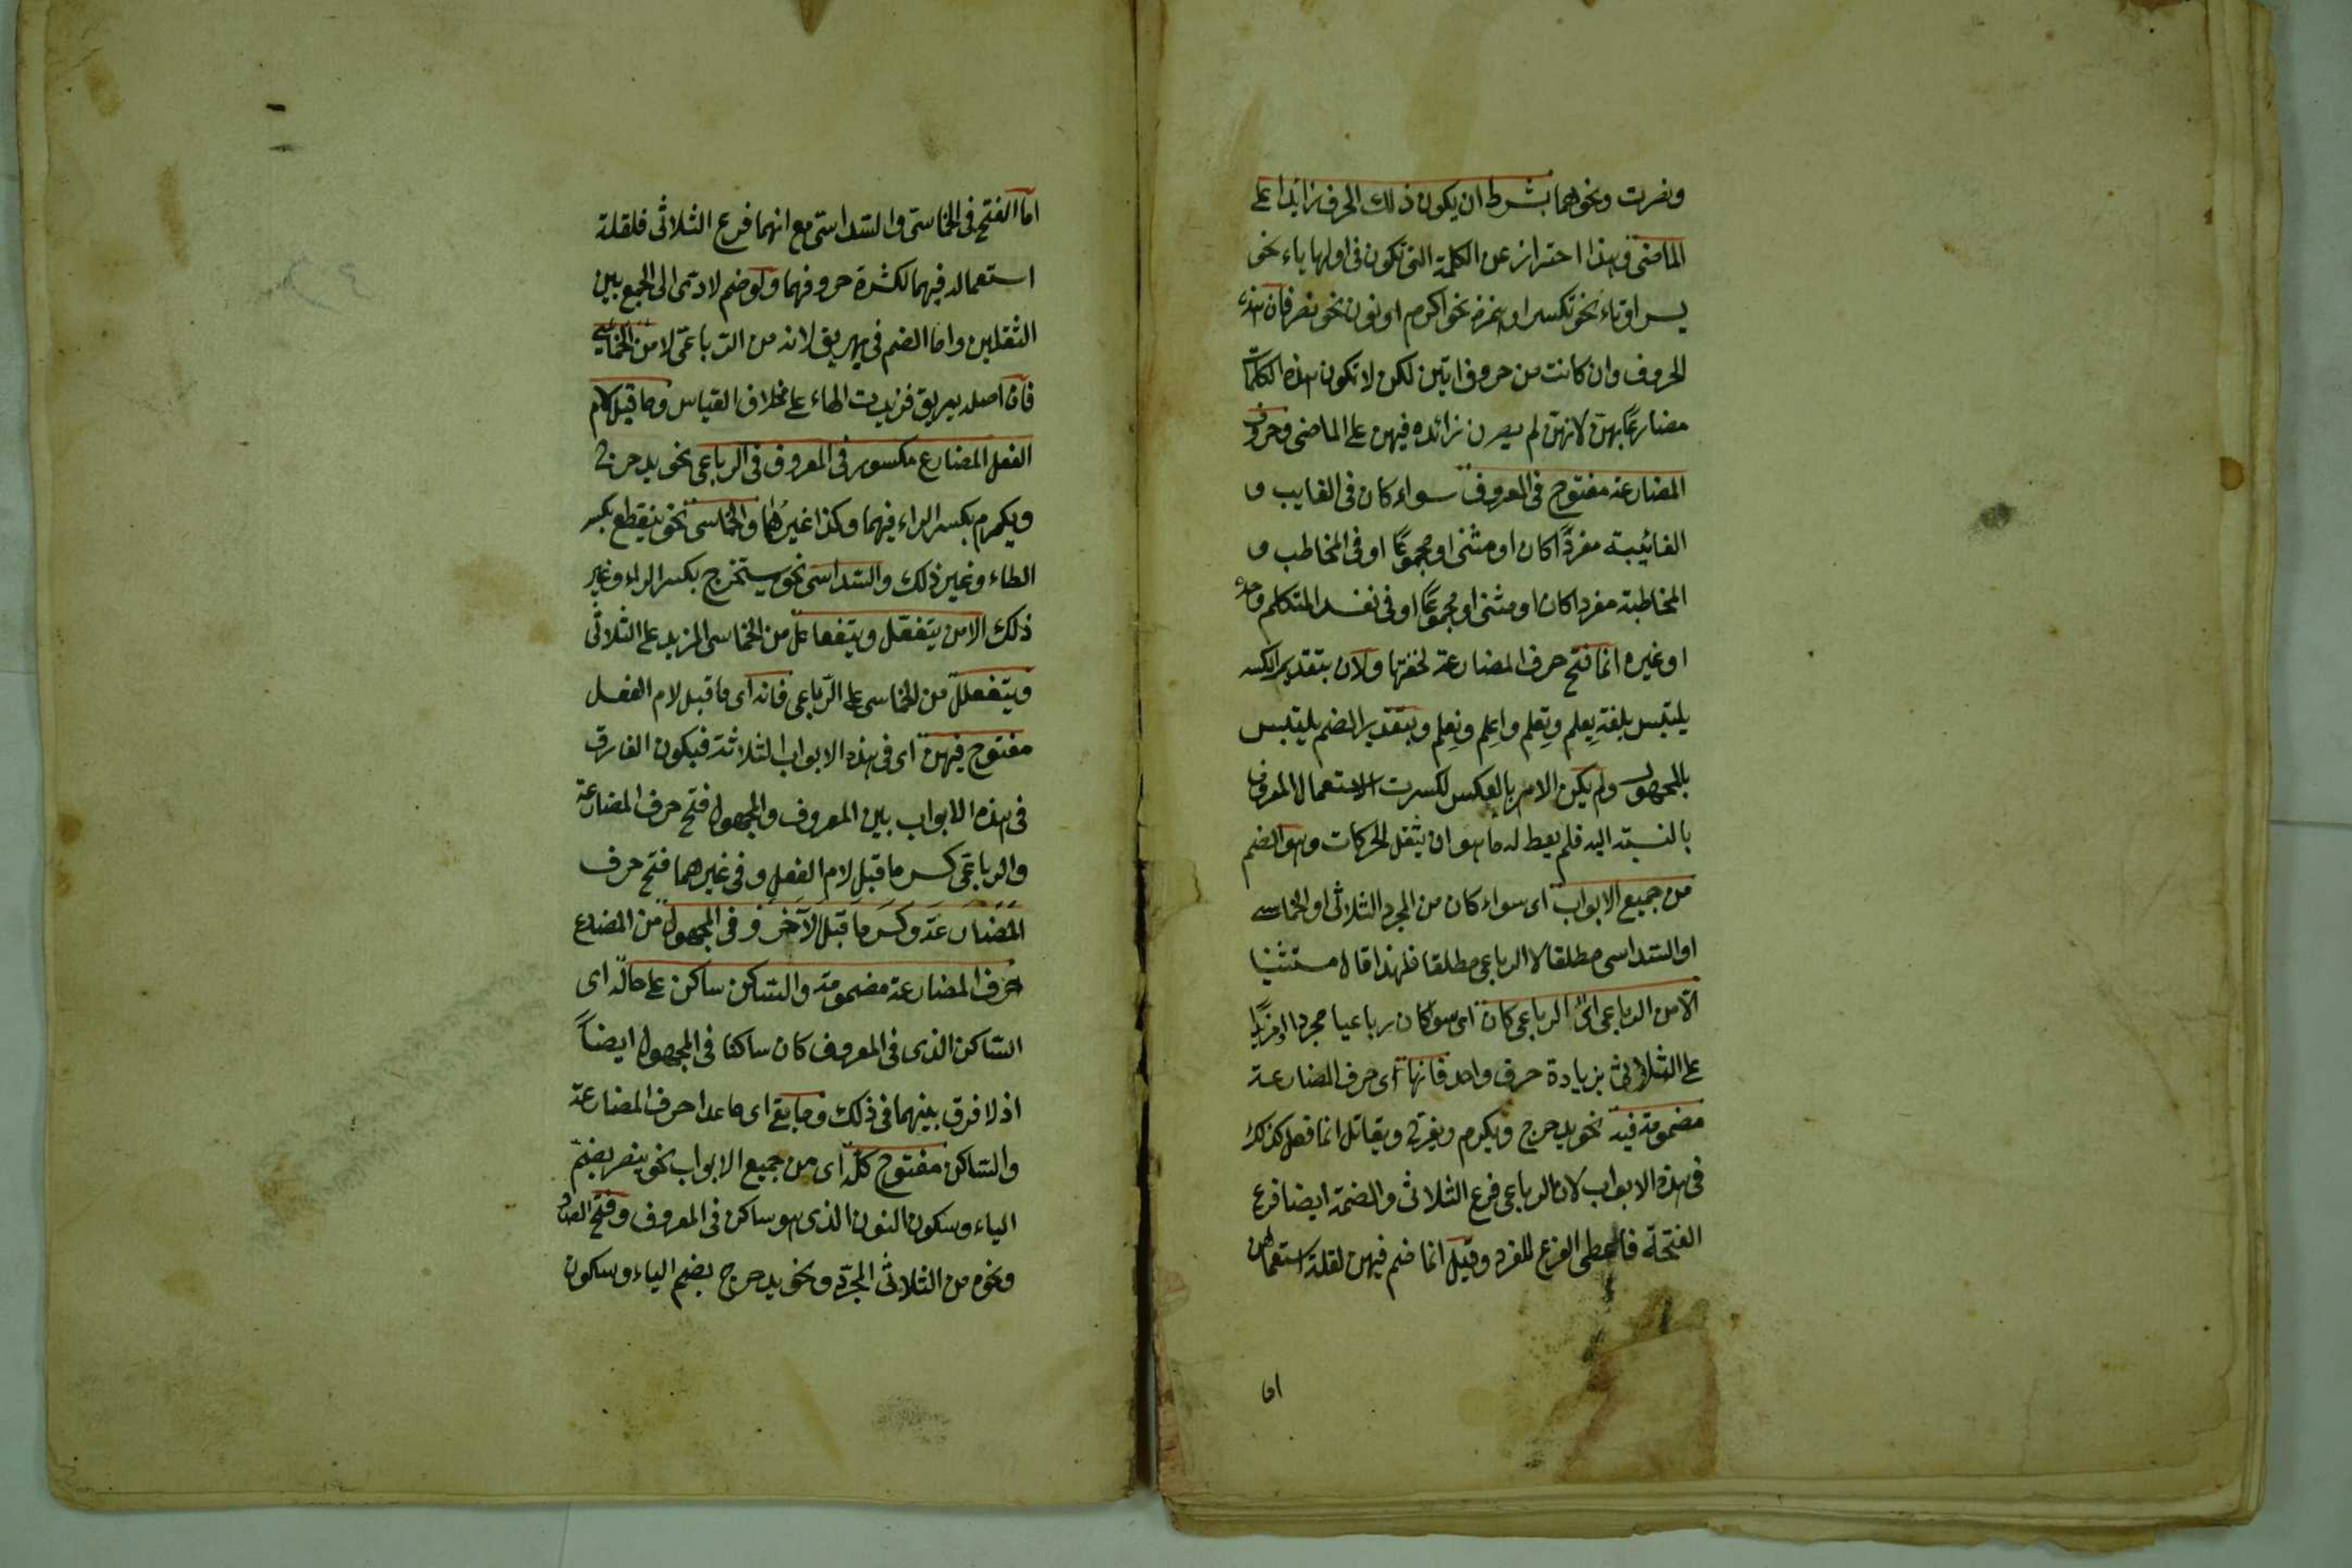 ونصرت ونحوهما بشرط ان يكون ذلك الحرف زائدا على
الماضى وهذا احتراز عن الكلمة التى تكون فى اولها ياء نحو
يسر او تاء نحو تكسر او همزة نحو اكرم او نون نحو نصر فان هذه
الحروف وان كانت من حروف اتين لكن لا تكون هذه الكلمات
مضارعًا بهنّ لانهنّ لم يصرن زائده فيهن على الماضى وحروف
المضارعة مفتوح فى المعروف سواء كان فى الغايب و
الغائيبة مفردًا كان او مثنى او مجموعًا او فى المخاطب و
المخاطبة مفردا كان او مثنى او مجموعًا او فى نفس المتكلم وحده
او غيره انما فتح حرف المضارعة لخفتها ولان بتقدير الكسر
يلتبس بلغة يعلم وتعلم واعلم ونعلم وبتقدير الضم يلتبس
بالمجهول ولم يكن الامر بالعكس لكسرت الاستعمال المعروف
بالنسبة اليه فلم يعط له ما هو ان يثقل الحركات وهو الضم
من جميع الابواب اى سواء كان من المجرد الثلاثى او الخماسى
او السّداسى مطلقا لا الرباعى مطلقا فلهذا قال مستثنيا
الّا من الرباعى اىّ الرباعى كان اى سواكان رباعيا مجردا او مزيدًا
على الثلاثى بزيادة حرف واحد فانها اى حرف المضارعة
مضمومة فيه نحو يدحرج ويكرم ويفرّح ويقاتل انما فعل كذلك
فى هذه الابواب لان الرباعى فرع الثلاثى والضمة ايضا فرع
الفتحة فاعطى الفرع للفرع وقيل انما ضم فيهن لقلة استعمالهن
اما
اما الفتح فى الخماسىّ والسّداسىّ مع انهما فرع الثلاثى فلقلة
استعماله فيهما لكثرة حروفهما ولو ضم لادّى الى الجمع بين
الثقلين واما الضم فى يهريق لانه من الرباعىّ لا من الخماسى
فان اصله يريق فزيدت الهاء على خلاف القياس وما قبل لام
الفعل المضارع مكسور فى المعروف فى الرباعى نحو يدحرج
ويكرم بكسر الراء فيهما وكذا غيرهما والخماسى نحو ينقطع بكسر
الطاء وغير ذلك والسّداسى نحو يستخرج بكسر الراء وغير
ذلك الا من يتفعّل ويتفاعل من الخماسى المزيد على الثلاثى
ويتفعلل من الخماسى على الرّباعى فانه اى ما قبل لام الفعل
مفتوح فيهن اى فى هذه الابواب الثلاثة فيكون الفارق
فى هذه الابواب بين المعروف والمجهول فتح حرف المضارعة
والرباعىّ كسر ما قبل لام الفعل وفى غيرهما فتح حرف
المضارعة وكسر ما قبل الآخر وفى المجهول من المضارع
حرف المضارعة مضمومة والسّاكن ساكن على حاله اى
السّاكن الذى فى المعروف كان ساكنا فى المجهول ايضاً
اذ لا فرق بينهما فى ذلك وما بقى اى ما عدا حرف المضارعة
والسّاكن مفتوح كلّه اى من جميع الابواب نحو ينصر بضمّ
الياء وسكون النون الذى هو ساكن فى المعروف وفتح الصاد
ونحوه من الثلاثى المجرّد ونحو يدحرج بضم الياء وسكون